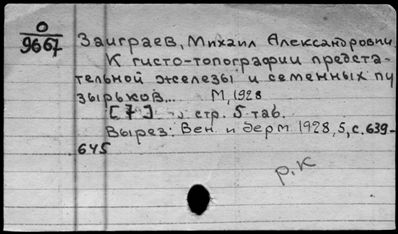 О
9667
Заиграев, Михаил Александрович.
К гисто-топографии предста-
тельной железы и семенных пу
зырьков... М, 1928
[7] стр. 5 таб.
Вырез: Вен. и дерм 1928, 5, с. 639-
645
р. К